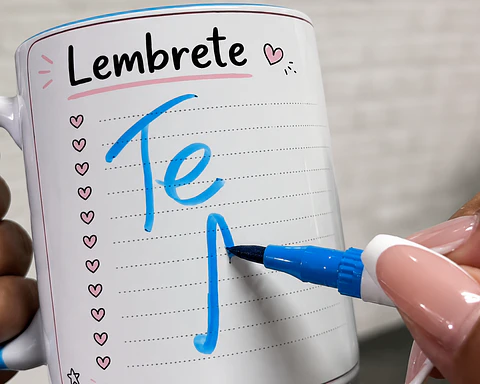 Lembrete
Te